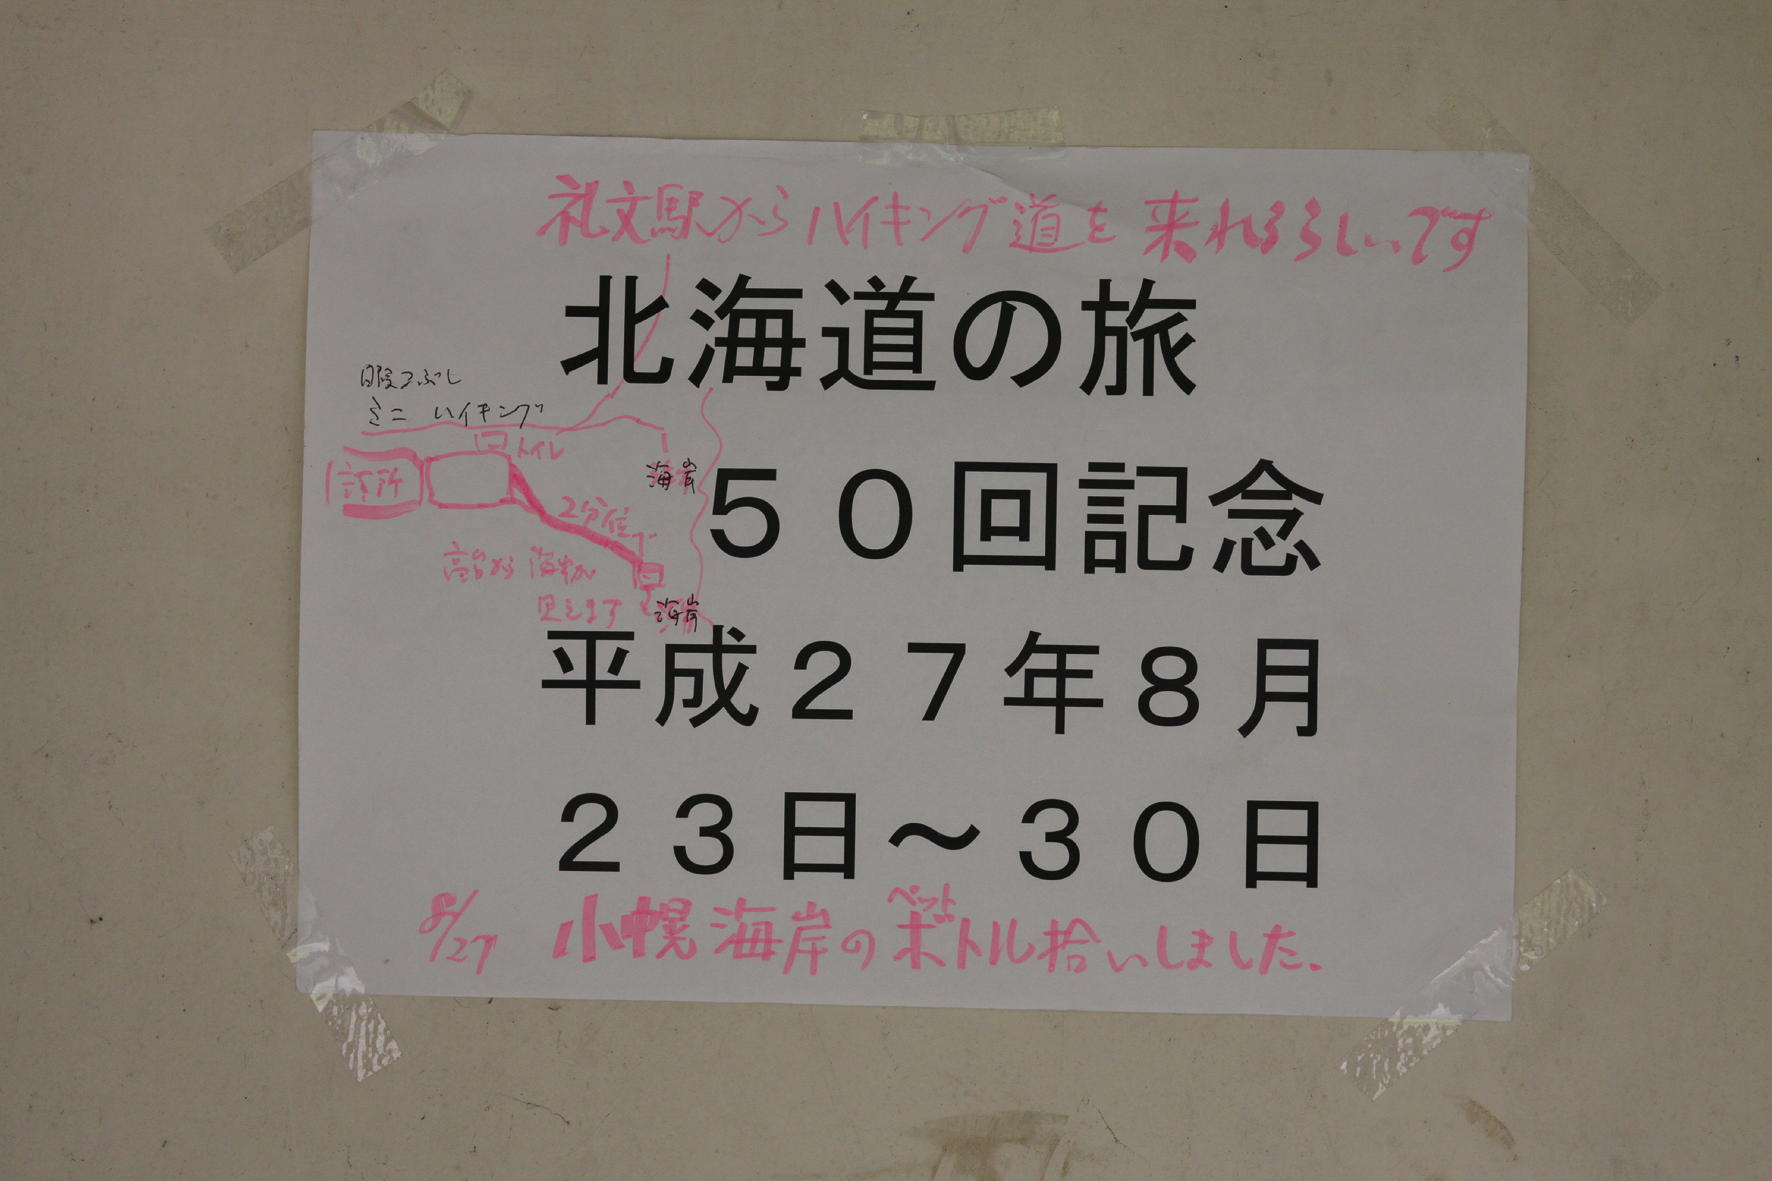 礼文駅からハイキング道を来れるらしいです
北海道の旅
暇つぶし
ミニハイキング
トイレ
海岸
５０回記念
詰所
2分位
高台から海岸が
見えます
海岸
平成２７年８月
２３日～３０日
8/27 小幌海岸のペットボトル拾いしました.